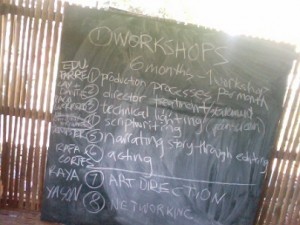 ① WORKSHOPS
6 months - 1 workshop
EDU ① production processes per month
② director treatment/statement
③ technical lighting
④ scriptwriting
⑤ narrating story through editing
RAFA ⑥ acting
CORTES
KAYA ⑦ ART DIRECTION
YASIN ⑧ NETWORKING